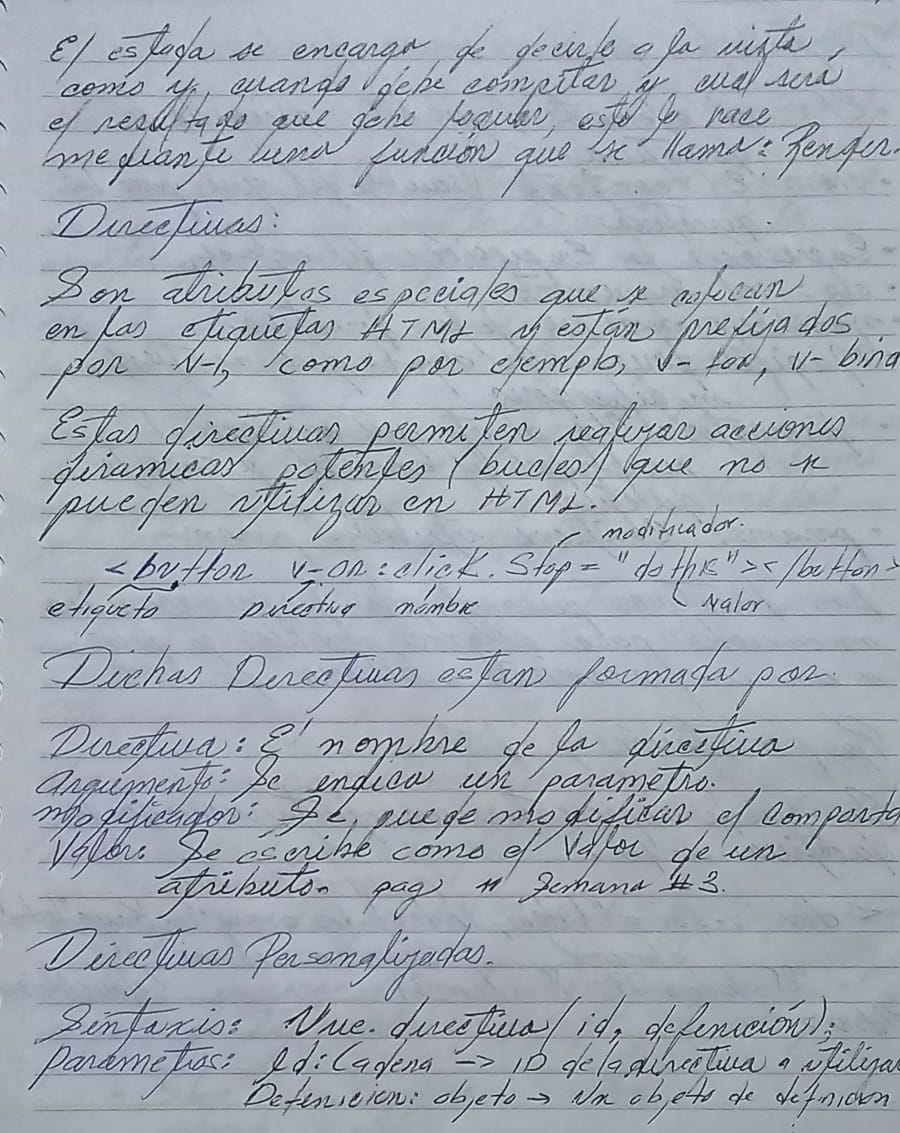 El estado se encarga de decirle a la vista,
como y, cuando debe compilar y cual será
el resultado que debe, esto lo hace
mediante una función que se llama: Render.
Directivas:
Son atributos especiales que se colocan
en las etiquetas HTML y están prefijados
por v-, como por ejemplo, v-for, v-bind
Estas directivas permiten realizar acciones
dinamicas potentes (bucles) que no se
pueden utilizar en HTML.
modificador.
<button v-on:click.Stop="dothis"></button>
etiqueta Directiva nombre Valor
Dichas Directivas estan formada por
Directiva: El nombre de la directiva
Argumento: Se endica un parametro.
modificador: Se puede modificar el comporta
Valor: Se escribe como el Valor de un
atributo. pag 11 Semana #3.
Directivas Personalizadas.
Sintaxis: Vue.directiva(id, defenición);
Parametros: Id: Cadena -> ID de la directiva a utilizar
Defenicion: objeto -> Un objeto de definicion